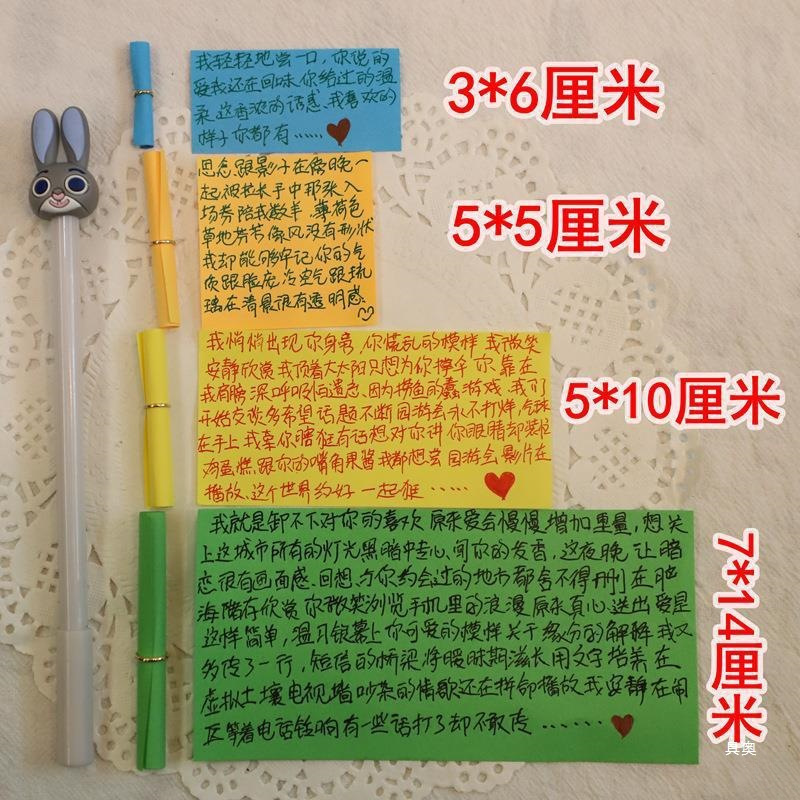 我轻轻地尝一口,你说的
爱我还在回味你给过的温
柔,这香浓的诱惑、我喜欢的
样子你都有……
3*6厘米
思念跟影子在傍晚一
起被拉长手中那张入
场券陪我数羊,薄荷色
草地芬芳像风没有形状
我却能够牢记你的气
质跟脸庞冷空气跟琉
璃在清晨很有透明感
5*5厘米
我悄悄出现你身旁,你慌乱的模样我微笑
安静欣赏我顶着大太阳只想为你撑伞你靠在
我肩膀深呼吸怕遗忘因为捞鱼的蠢游戏我们
开始交谈多希望话题不断园游会永不打烊,气球
在手上我牵你瞎逛有话想对你讲你眼睛却装忙
鸡蛋糕跟你的嘴角果酱我都想尝园游会影片在
播放这个世界约好一起逛……
5*10厘米
我就是卸不下对你的喜欢原来爱会慢慢增加重量,想关
上这城市所有的灯光黑暗中专心闻你的发香,这夜晚让暗
恋很有画面感、回想与你约会过的地方都舍不得删在脑
海储存欣赏你微笑浏览手机里的浪漫原来真心送出爱是
这样简单,温习银幕上你可爱的模样关于缘分的解释我又
多传了一行,短信的桥梁将暧昧期滋长用文字培养在
虚拟土壤电视墙吵杂的情歌还在拼命播放我安静在闹
区等着电话铃响有一些话打了却不敢传……
7*14厘米